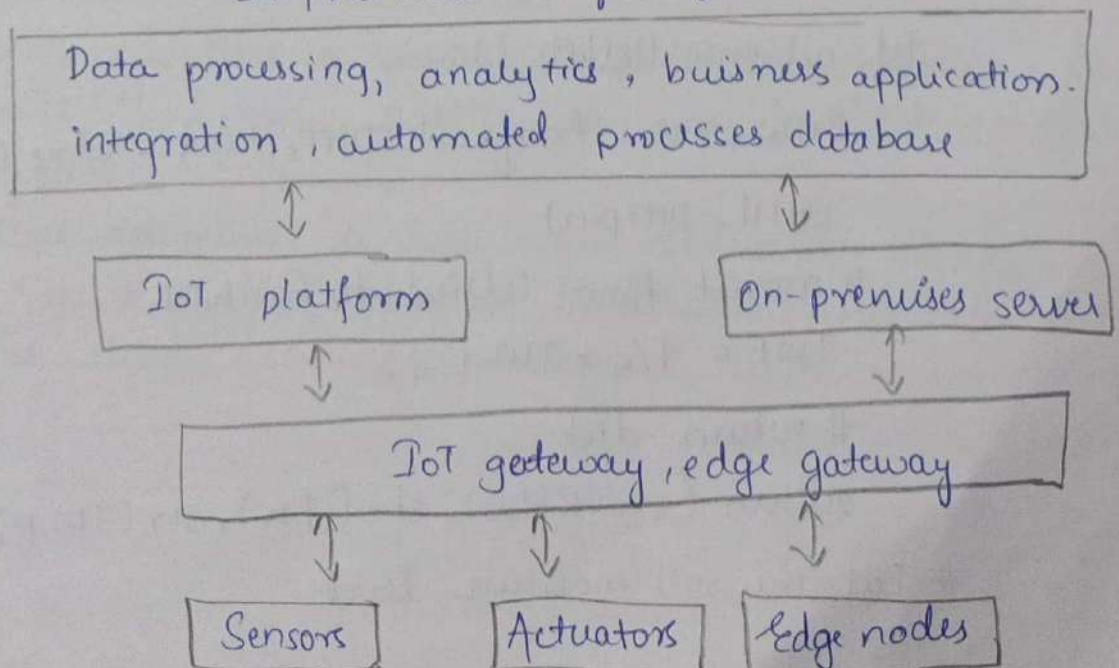 Data processing, analytics, buisness application.
integration, automated processes database
IoT platform
On-premises server
IoT gateway, edge gateway
Sensors
Actuators
Edge nodes